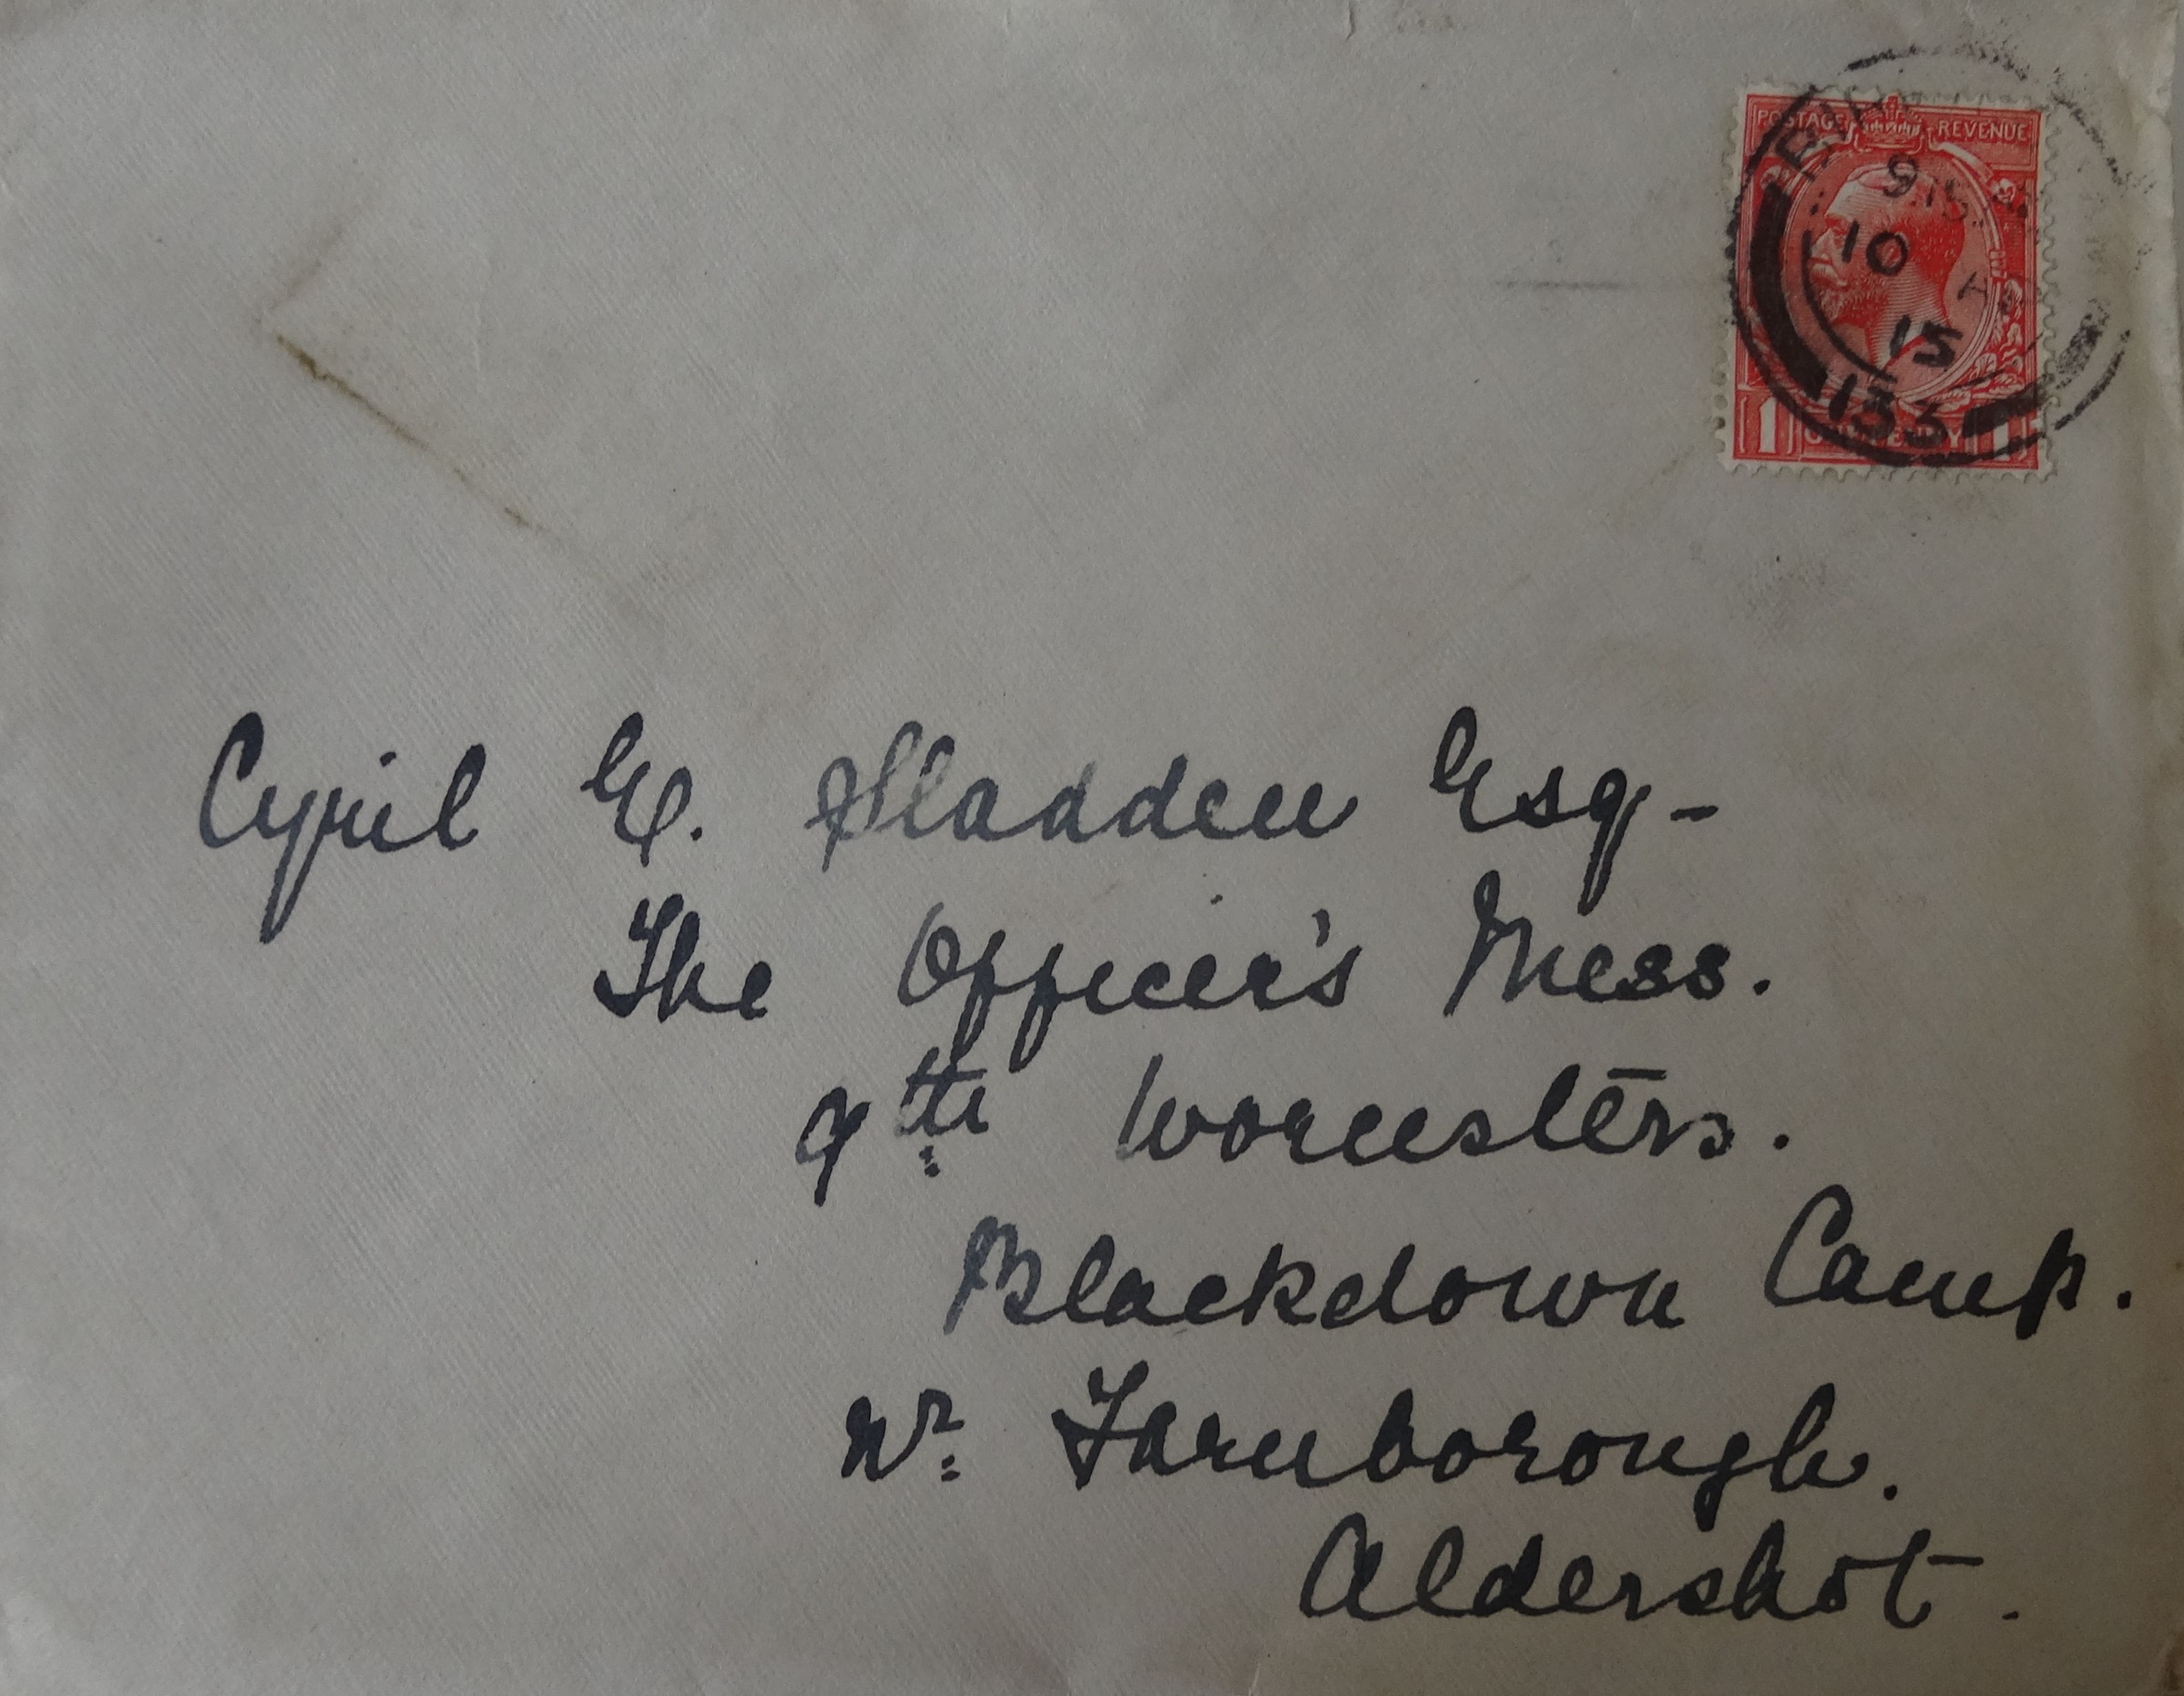 POSTAGE REVENUE
9.15
10
15
133
1 ONE PENNY 1
Cyril E. Sladden Esq-
The Officer's Mess.
9th Worcesters.
Blackdown Camp.
Nr. Farnborough.
Aldershot.